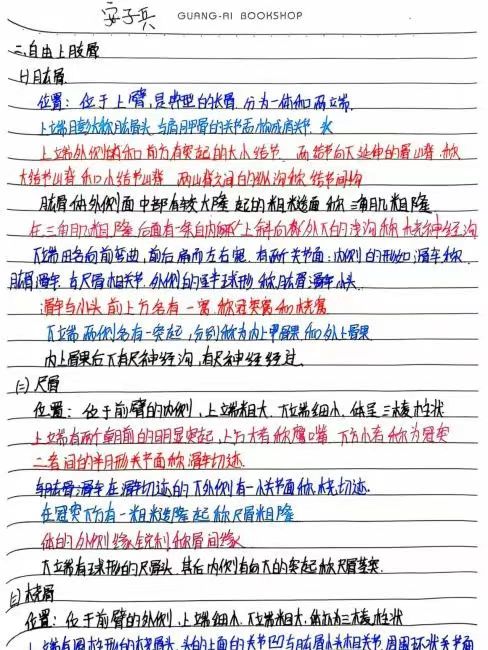 安子兵 GUANG-AI BOOKSHOP
二.自由上肢骨
(一)肱骨
位置：位于上臂，是典型的长骨，分为一体和两立端.
上端膨大称肱骨头，与肩胛骨的关节盂构成肩关节.
上端外侧和前方有突起的大小结节，两结节向下延伸的骨嵴，称
大结节嵴和小结节嵴 两嵴之间的纵沟称结节间沟
肱骨体外侧面中部有较大隆起的粗糙面称三角肌粗隆
在三角肌粗隆后面有一条自内上斜向外下的浅沟称桡神经沟
下端田各向前弯曲，前后扁而左右宽，有两个关节面：内侧的形如滑车称
肱骨滑车，与尺骨相关节，外侧的呈半球形，称肱骨小头.
滑车与小头前上方各有一窝，称冠突窝和桡窝
下立端两侧各有一突起，分别称为内上髁和外上髁
内上髁后下有尺神经沟，有尺神经经过.
(二)尺骨
位置：位于前臂的内侧，上端粗大，下端细小，体呈三棱柱状
上端有两个朝前的明显突起，上方大者称鹰嘴，下方小者称为冠突
二者间的半月形关节面称滑车切迹.
在滑车切迹的下外侧有一小关节面称桡切迹.
在冠突下方有一粗糙隆起称尺骨粗隆
体的外侧缘锐利称骨间缘
下立端有球形的尺骨头，其后内侧有向下的突起称尺骨茎突.
(三)桡骨
位置：位于前臂的外侧，上端细小，下端粗大，体为三棱柱状
上端有圆柱形的桡骨头，头的上面的关节凹与肱骨小头相关节，周围环状关节面